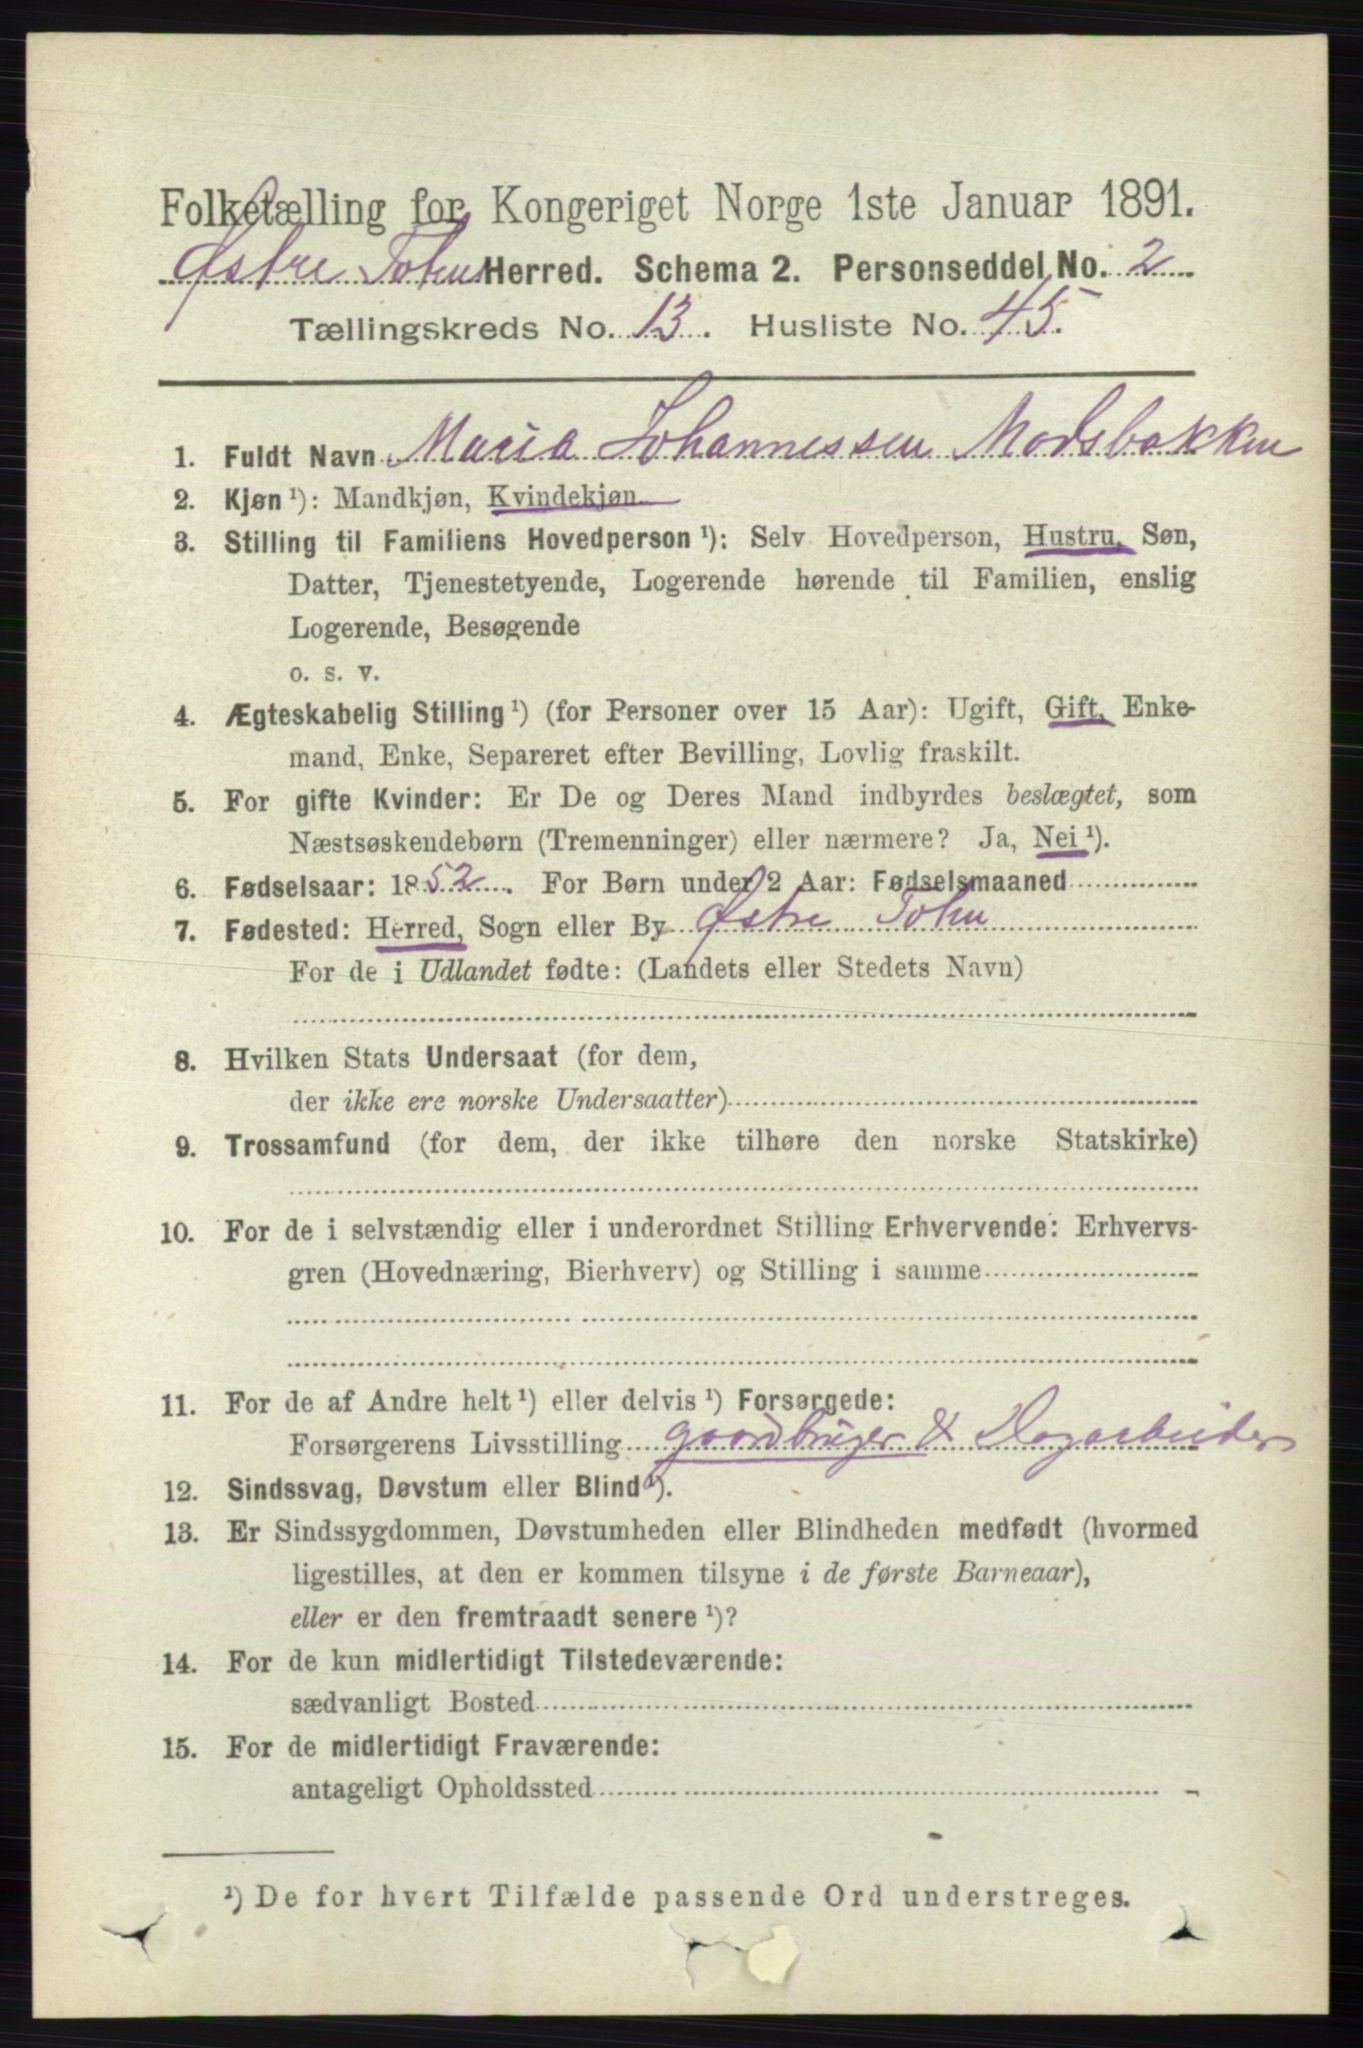 Folketælling for Kongeriget Norge 1ste Januar 1891.
Østre Totens Herred. Schema 2. Personseddel No. 2
Tællingskreds No. 13. Husliste No. 45.
1. Fuldt Navn Maria Johannessen Modsbakken
2. Kjøn ¹): Mandkjøn, Kvindekjøn
3. Stilling til Familiens Hovedperson ¹): Selv Hovedperson, Hustru, Søn,
Datter, Tjenestetyende, Logerende hørende til Familien, enslig
Logerende, Besøgende
o. s. v.
4. Ægteskabelig Stilling ¹) (for Personer over 15 Aar): Ugift, Gift, Enke-
mand, Enke, Separeret efter Bevilling, Lovlig fraskilt.
5. For gifte Kvinder: Er De og Deres Mand indbyrdes beslægtet, som
Næstsøskendebørn (Tremenninger) eller nærmere? Ja, Nei ¹).
6. Fødselsaar: 1852. For Børn under 2 Aar: Fødselsmaaned
7. Fødested: Herred, Sogn eller By Østre Toten
For de i Udlandet fødte: (Landets eller Stedets Navn)
8. Hvilken Stats Undersaat (for dem,
der ikke ere norske Undersaatter)
9. Trossamfund (for dem, der ikke tilhøre den norske Statskirke)
10. For de i selvstændig eller i underordnet Stilling Erhvervende: Erhvervs-
gren (Hovednæring, Bierhverv) og Stilling i samme
11. For de af Andre helt ¹) eller delvis ¹) Forsørgede:
Forsørgerens Livsstilling gaardbruger & Dagarbeider
12. Sindssvag, Døvstum eller Blind ¹).
13. Er Sindssygdommen, Døvstumheden eller Blindheden medfødt (hvormed
ligestilles, at den er kommen tilsyne i de første Barneaar),
eller er den fremtraadt senere ¹)?
14. For de kun midlertidigt Tilstedeværende:
sædvanligt Bosted
15. For de midlertidigt Fraværende:
antageligt Opholdssted
¹) De for hvert Tilfælde passende Ord understreges.